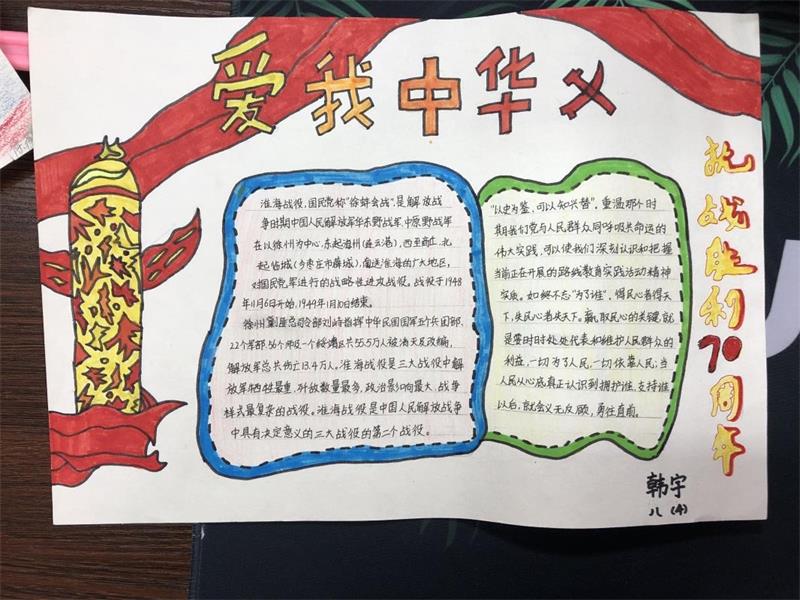 爱我中华
淮海战役，国民党称“徐蚌会战”，是解放战
争时期中国人民解放军华东野战军、中原野战军
在以徐州为中心，东起海州（连云港），西至商丘，北
起临城（今枣庄市薛城），南达淮海的广大地区，
对国民党军进行的战略性进攻战役。战役于1948
年11月6日开始，1949年1月10日结束。
徐州剿总总司令部刘峙指挥中华民国国军五个兵团部，
22个军部，56个师及一个绥靖区共55.5万人被消灭及改编，
解放军总共伤亡13.4万人。淮海战役是三大战役中解
放军牺牲最重，歼敌数量最多，政治影响最大，战争
样式最复杂的战役。淮海战役是中国人民解放战争
中具有决定意义的三大战役的第二个战役。
“以史为鉴，可以知兴替”。重温那个时
期我们党与人民群众同呼吸共命运的
伟大实践，可以使我们深刻认识和把握
当前正在开展的路线教育实践活动精神
实质。如终不忘“为了谁”，得民心者得天
下，失民心者失天下。赢取民心的关键就
是要时时处处代表和维护人民群众的
利益，一切为了人民，一切依靠人民，当
人民从心底真正认识到拥护谁、支持谁
以后，就会义无反顾，勇往直前。
抗战胜利70周年
韩宇
八（4）